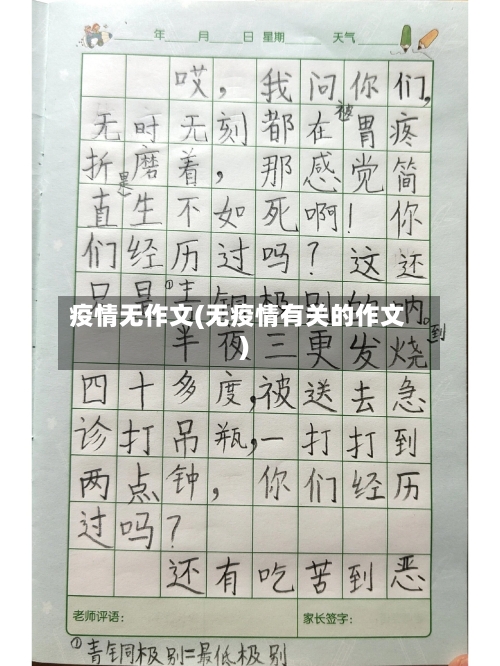 年 月 日 星期 天气
哎，我问你们，
无时无刻都在被胃疼
折磨着，那感觉简
直是生不如死啊！你
们经历过吗？这还
只是①青铜级别的呐。
疫情无作文(无疫情有关的作文
)
半夜三更发烧到
四十多度，被送去急
诊打吊瓶，一打打到
两点钟，你们经历
过吗？
还有吃苦到恶
老师评语： 家长签字：
①青铜极别=最低极别